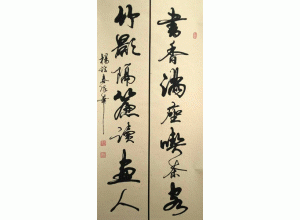 書香滿座喫茶客
竹影隔簾讀畫人